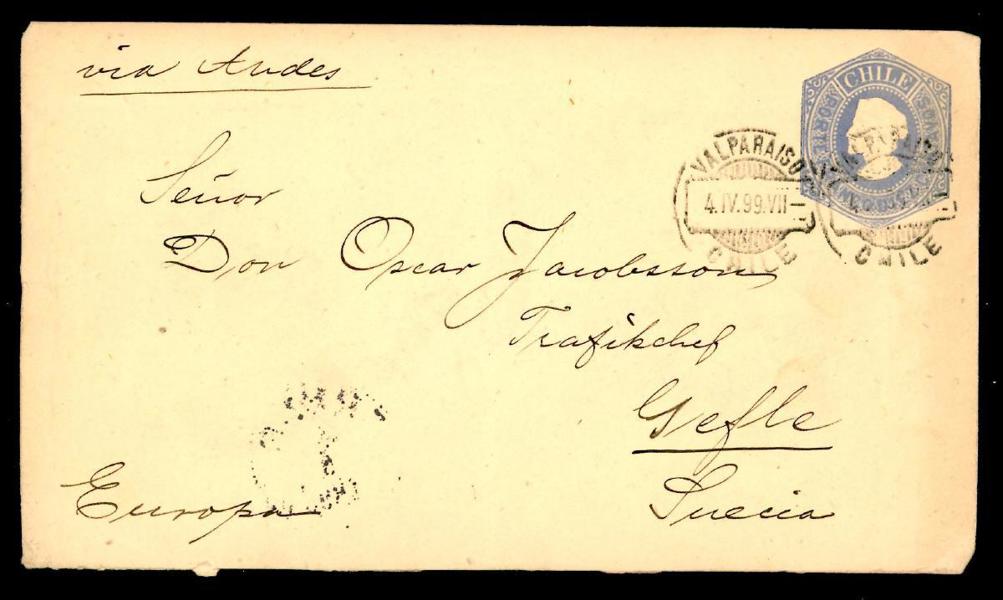 via Andes
CHILE
VALPARAISO
4.IV.99.VII
CHILE
CHILE
Señor
Don Oscar Jacobsson
Trafikchef
Gefle
Suecia
Europa